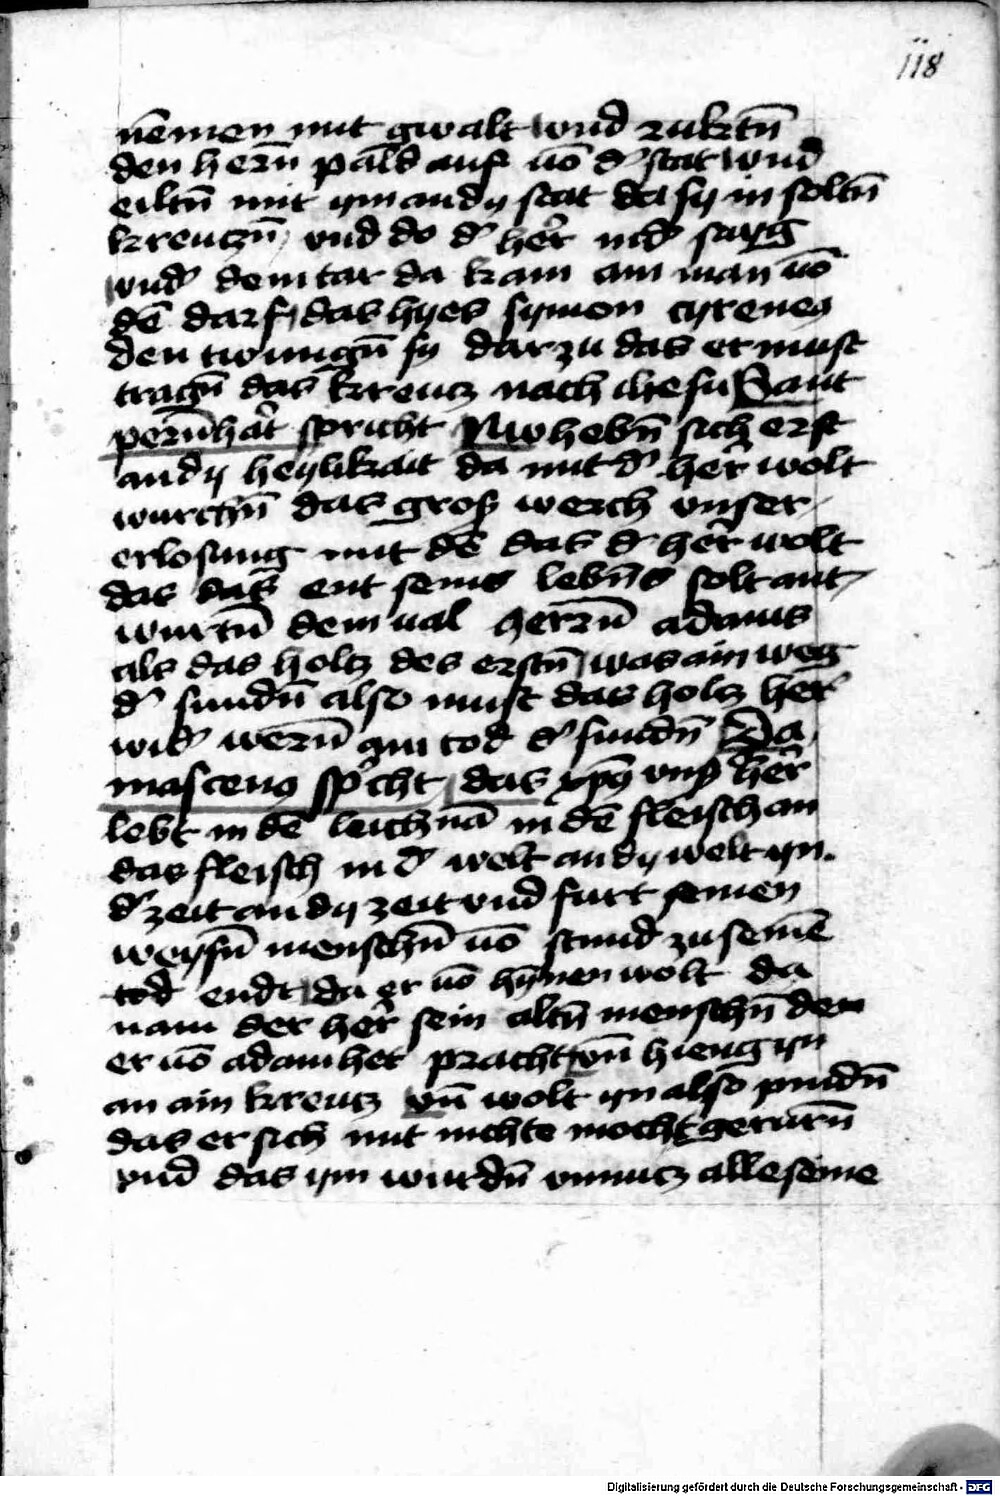 118
nēmen mit gwalt vnd zuktn̄
den hern̄ pald auf uō d' stat vnd
eiltn̄ mit ym an dy stat da sy in soltn̄
kreutzn̄ vnd do d' her nid' sayg
vnd' dem tar da kam ain man uō
dē darf das hyes symon cyreneꝯ
den twungn̄ sy dar zu das er must
tragn̄ das kreutz nach ihesu Sant
pern̄hart spricht Nw hebn̄ sich erst
an dy heylikait da mit d' her wolt
wurchn̄ das gros werch vnser
erlosung mit dē das d' her wolt
das das ent seins lebn̄s solt ant
wurtn̄ dem ual herzn̄ adams
als das holtz des erstn̄ was ain weg
d' sundn̄ also must das holtz her
wid' wern̄ ain tod d' sundn̄ Da
mascenꝯ sp'cht das xp̄s vnß her
lebt in dē leichnā in dē fleisch an
das fleisch in d' welt an dy welt yn
d' zeit an dy zeit vnd furt seinen
weysn̄ menschn̄ uō stund zu seinē
tod endt da er uō hynnen wolt da
nam der her sein altn̄ menschn̄ den
er uō adam her pracht vn̄ hieng yn
an ain kreutz vn̄ wolt yn also pindn̄
das er sich mit nichte mocht gerurn̄
vnd das ym wurdn̄ vnnutz alle seine
Digitalisierung gefördert durch die Deutsche Forschungsgemeinschaft - DFG